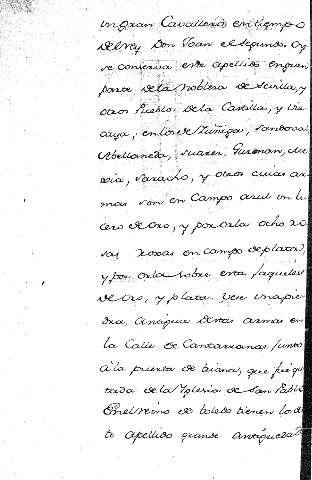 un gran Cavallero en tiempo
del rey Don Joan el segundo. Oy
se conserva este apellido en gran
parte de la Nobleza de Sevilla, y
otros Pueblos de la Castilla, y Vis
caya, en los de Zuñigas, Sandoval
Abellaneda, Suarez, Guzman, 
 y otros cuias ar
mas son en campo azul un lu
cero de oro, y por orla ocho ro
sas roxas en campo de plata,
y por orla sobre esta jaqueles
de oro, y plata. Vese una pie
dra antigua destas armas en
la Calle de Cantarranas junto
à la puerta de triana, que fue qui
tada de la Yglesia de San Pablo
En el reino de toledo tienen los de
te apellido grande antigueda